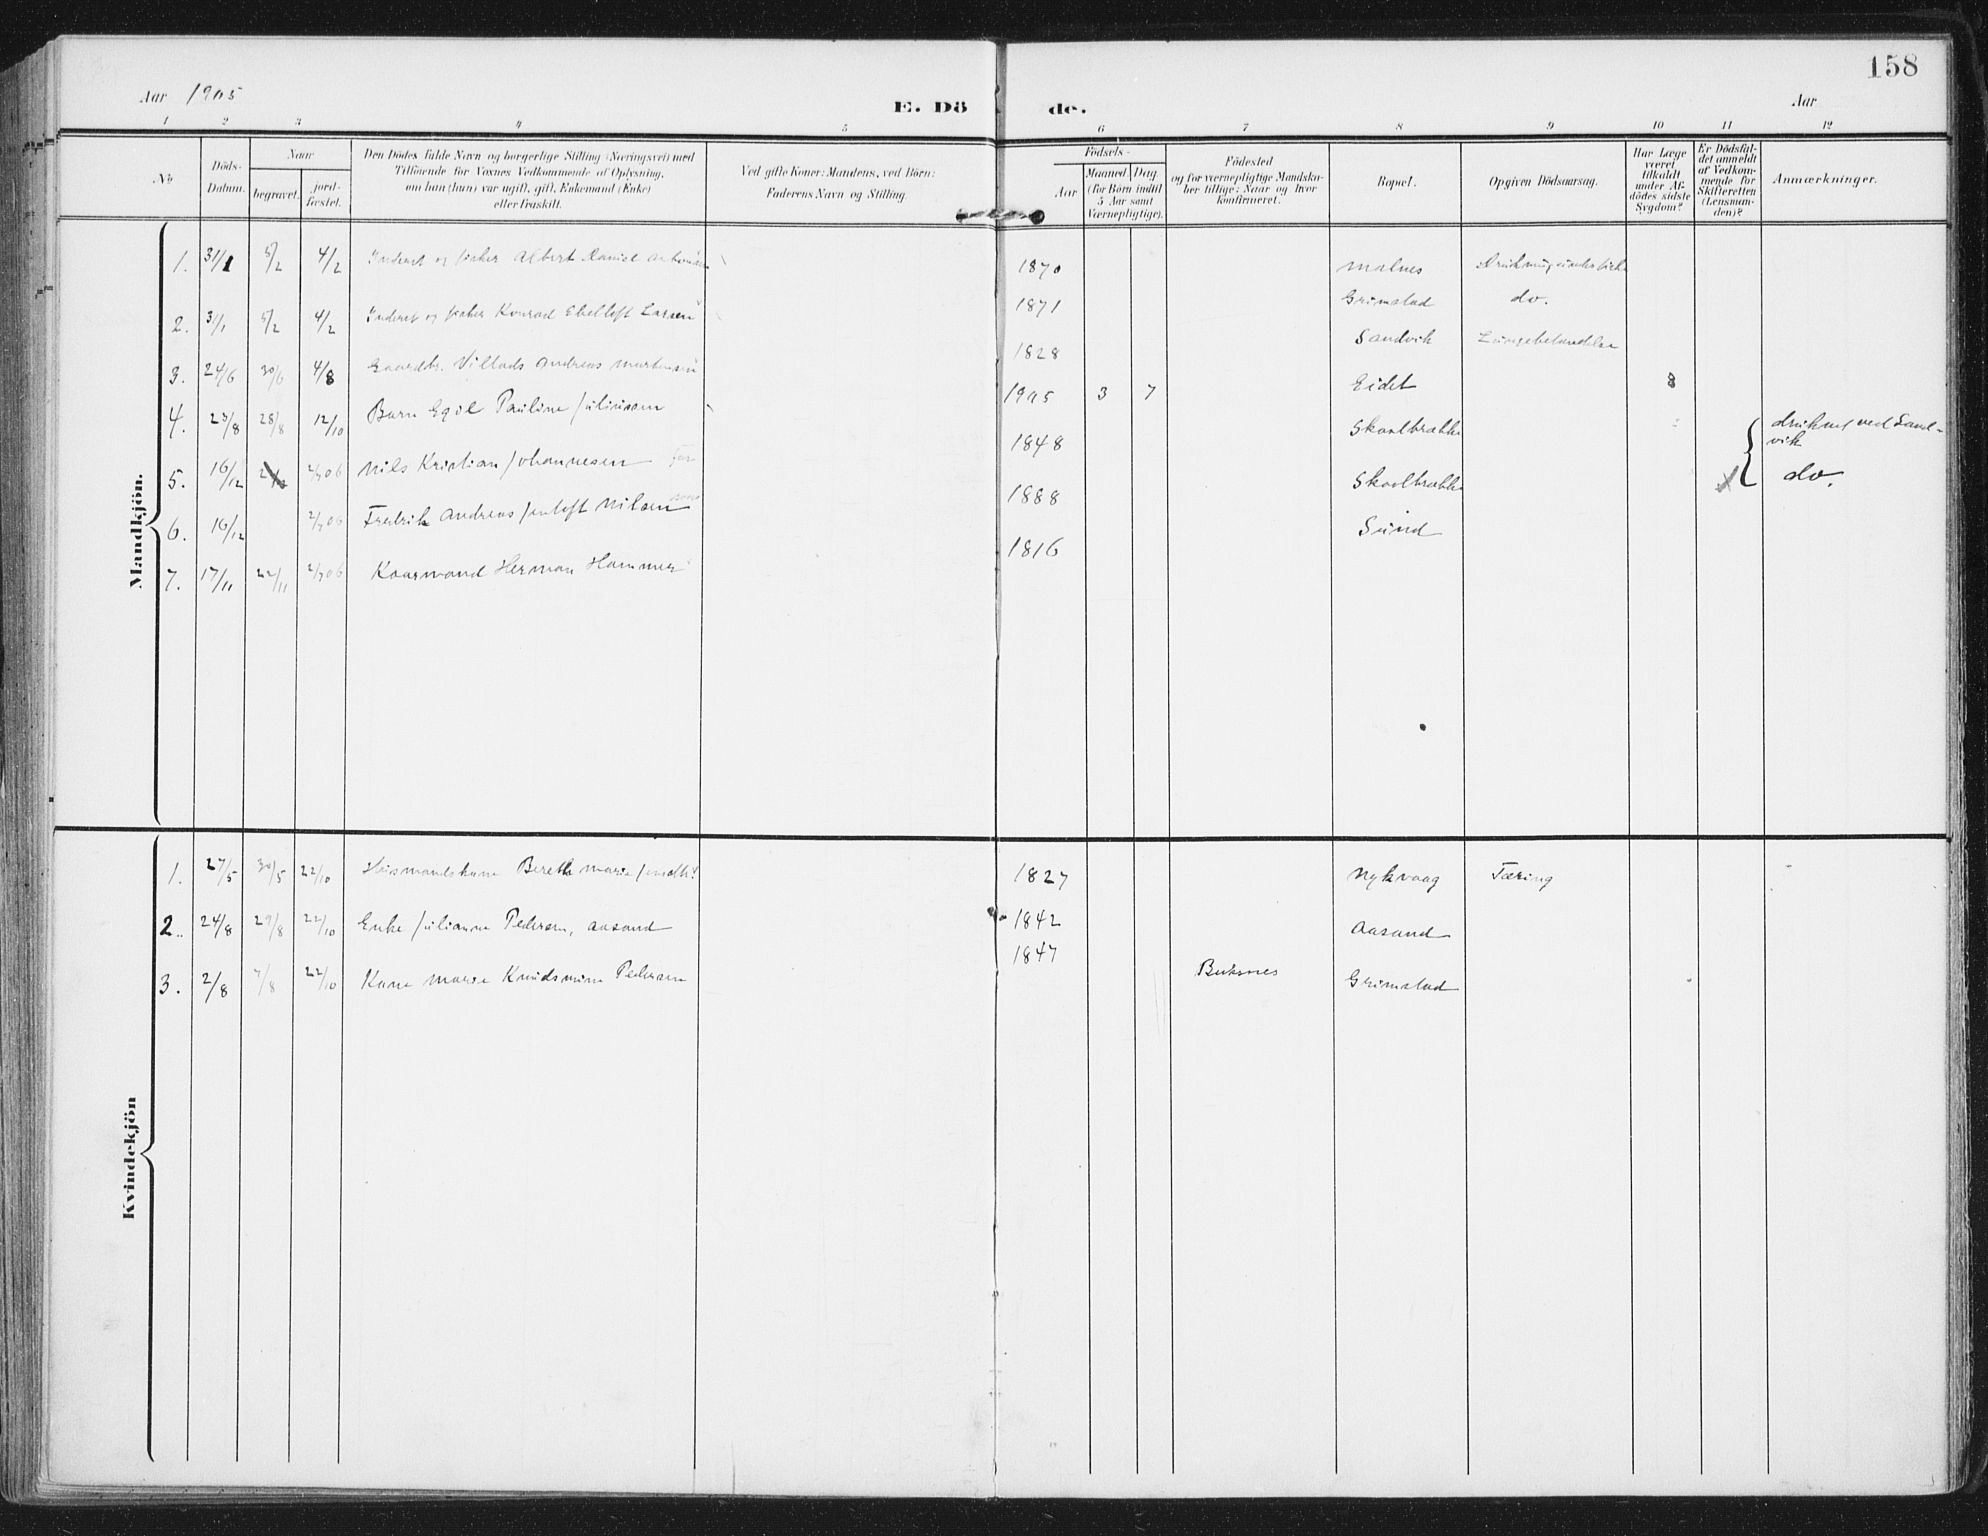 158
Aar 1905
E. Dö de.
Aar
1 2 3 4 5 6 7 8 9 10 11 12
No
Döds-Datum.
Naar
begravet.
jord-fæstet.
Den Dödes fulde Navn og borgerlige Stilling (Næringsvei) med
Tilföiende for Voxnes Vedkommende af Oplysning,
om han (hun) var ugift, gift, Enkemand (Enke)
eller fraskilt.
Ved gifte Koner: Mandens, ved Börn:
Faderens Navn og Stilling.
Födsels-
Aar
Maaned. Dag.
(for Börn indtil
5 Aar samt
Værnepligtige).
Födested
og for værnepligtige Mandska-
ber tillige: Naar og hvor
konfirmeret.
Bopæl.
Opgiven Dödsaarsag.
Har Læge
været
tilkaldt
under Af-
dödes sidste
Sygdom?
Er Dödsfal-
det anmeldt
af Vedkom-
mende for
Skifteretten
(Lensman-
den)?
Anmærkninger.
Mandkjön.
1. 31/1 5/2 4/2 Inderst og fisker Albert Daniel 1870 Malnes
2. 31/1 5/2 4/2 Inderst og fisker Konrad Ebeltoft Larsen 1871 Grimstad do.
3. 24/6 30/6 4/8 Gaardbr. Villads Andreas Martinsen 1828 Sandvik
4. 23/8 28/8 12/10 Barn Egil Pauline Juliussen 1905 3 7 Eidet
5. 16/12 2/7 06 Nils Kristian Johannesen far 1848 Skovlbrække druknet ved Sand-
vik
6. 16/12 2/7 06 Fredrik Andreas Jentoft Nilsen 1888 Skovlbrække do.
7. 17/11 22/11 2/7 06 Kaarmand Herman Hammer 1816 Sund
Kvindekjön
1. 27/5 30/5 22/10 Husmandskone Bereth Marie 1827 Nykvaag Tæring
2. 24/8 29/8 22/10 Enke Julianne Pedersen, Aasand 1842 Aasand
3. 2/8 7/8 22/10 Kone Marie Knudsmine Pedersen 1847 Buksnes Grimstad